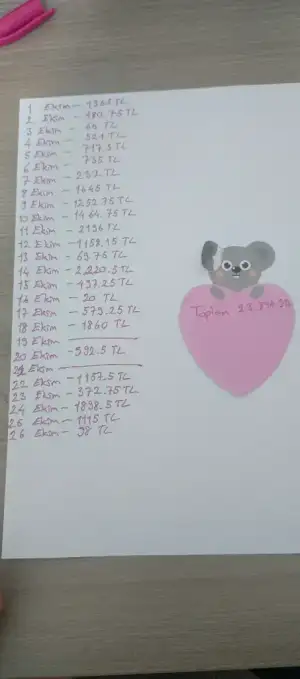 1 Ekim - 1363 TL
2 Ekim - 480.75 TL
3 Ekim - 65 TL
4 Ekim - 521 TL
5 Ekim - 717.5 TL
6 Ekim - 735 TL
7 Ekim - 232 TL
8 Ekim - 1645 TL
9 Ekim - 1252.75 TL
10 Ekim - 1464.75 TL
11 Ekim - 2196 TL
12 Ekim - 1159.15 TL
13 Ekim - 69.75 TL
14 Ekim - 2,220.5 TL
15 Ekim - 437.25 TL
16 Ekim - 20 TL
17 Ekim - 573.25 TL
18 Ekim - 1860 TL
19 Ekim
20 Ekim - 592.5 TL
21 Ekim
22 Ekim - 1157.5 TL
23 Ekim - 372.75 TL
24 Ekim - 1898.5 TL
25 Ekim - 1115 TL
26 Ekim - 98 TL
Toplam